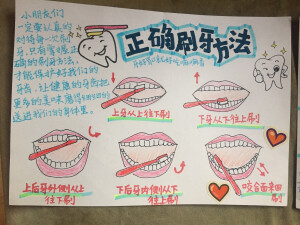 小朋友们
一定要认真的
对待每一次刷
牙,只有掌握正
确的刷牙方法,
才能保护好我们的
牙齿,让健康的牙齿把
更多的美味
送进我们的身体里。
正确刷牙方法
上牙从上往下刷
下牙从下往上刷
上后牙外侧从上
往下刷
下后牙内侧从下
往上刷
咬合面来回
刷